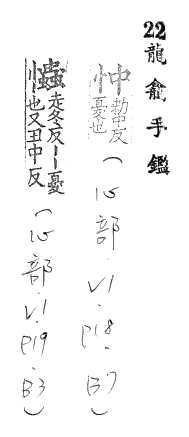 22 龍龕手鑑
忡 勅中反憂也 (心部.V1.P18.B7)
𢥞 徒冬反丨憂丨也又丑中反 (心部.V1.P19.B3)